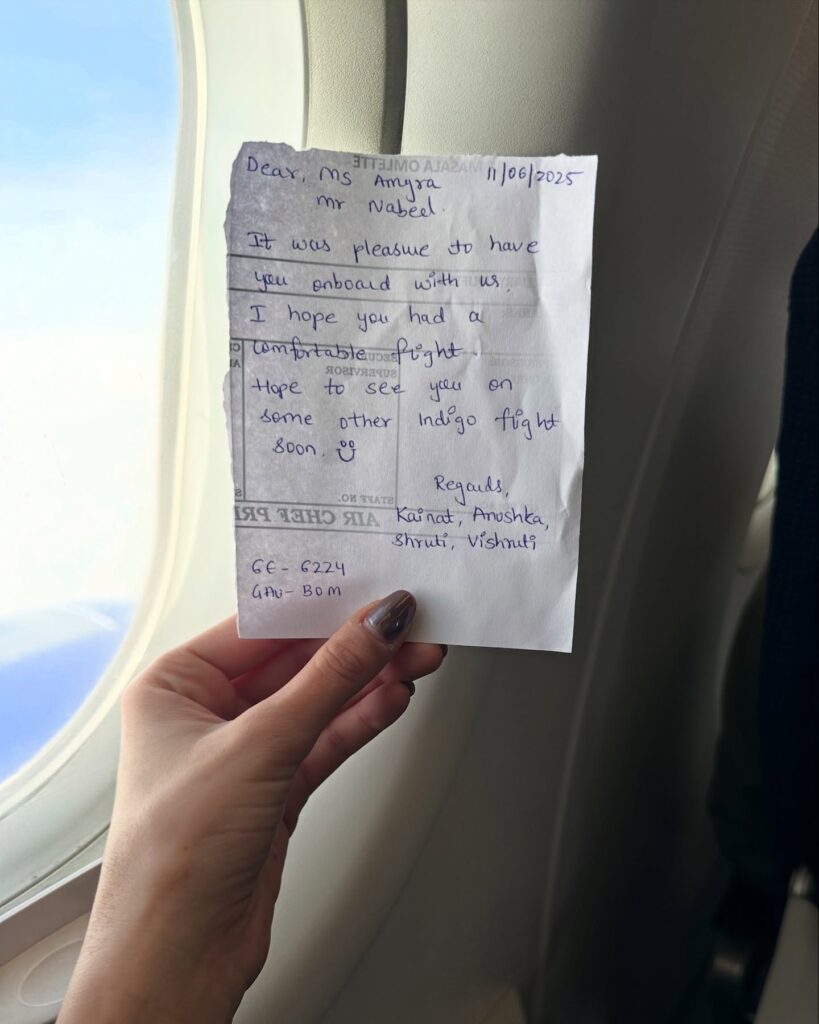 MASALA OMLETTE
Dear, Ms Amyra 11/06/2025
Mr Nabeel.
It was pleasure to have
you onboard with us.
I hope you had a
comfortable flight.
SUPERVISOR
Hope to see you on
some other Indigo flight
soon.
STAFF NO.
Regards,
AIR CHEF PRI
Kainat, Anushka,
Shruti, Vishruti
6E- 6224
GAU- BOM